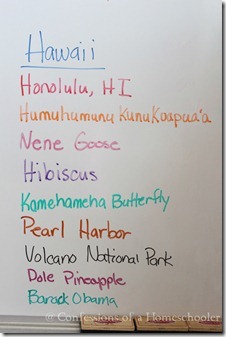 Hawaii
Honolulu, HI
Humuhumunu Kunu Kaapua'a
Nene Goose
Hibiscus
Kamehameha Butterfly
Pearl Harbor
Volcano National Park
Dole Pineapple
Barack Obama
@ Confessions of a Homeschooler